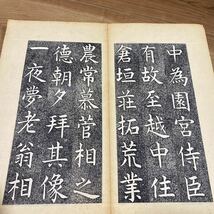 中為園宮侍臣
有故至越中住
倉垣荘拓荒業
農常慕菅相之
德朝夕拜其像
一夜夢老翁相